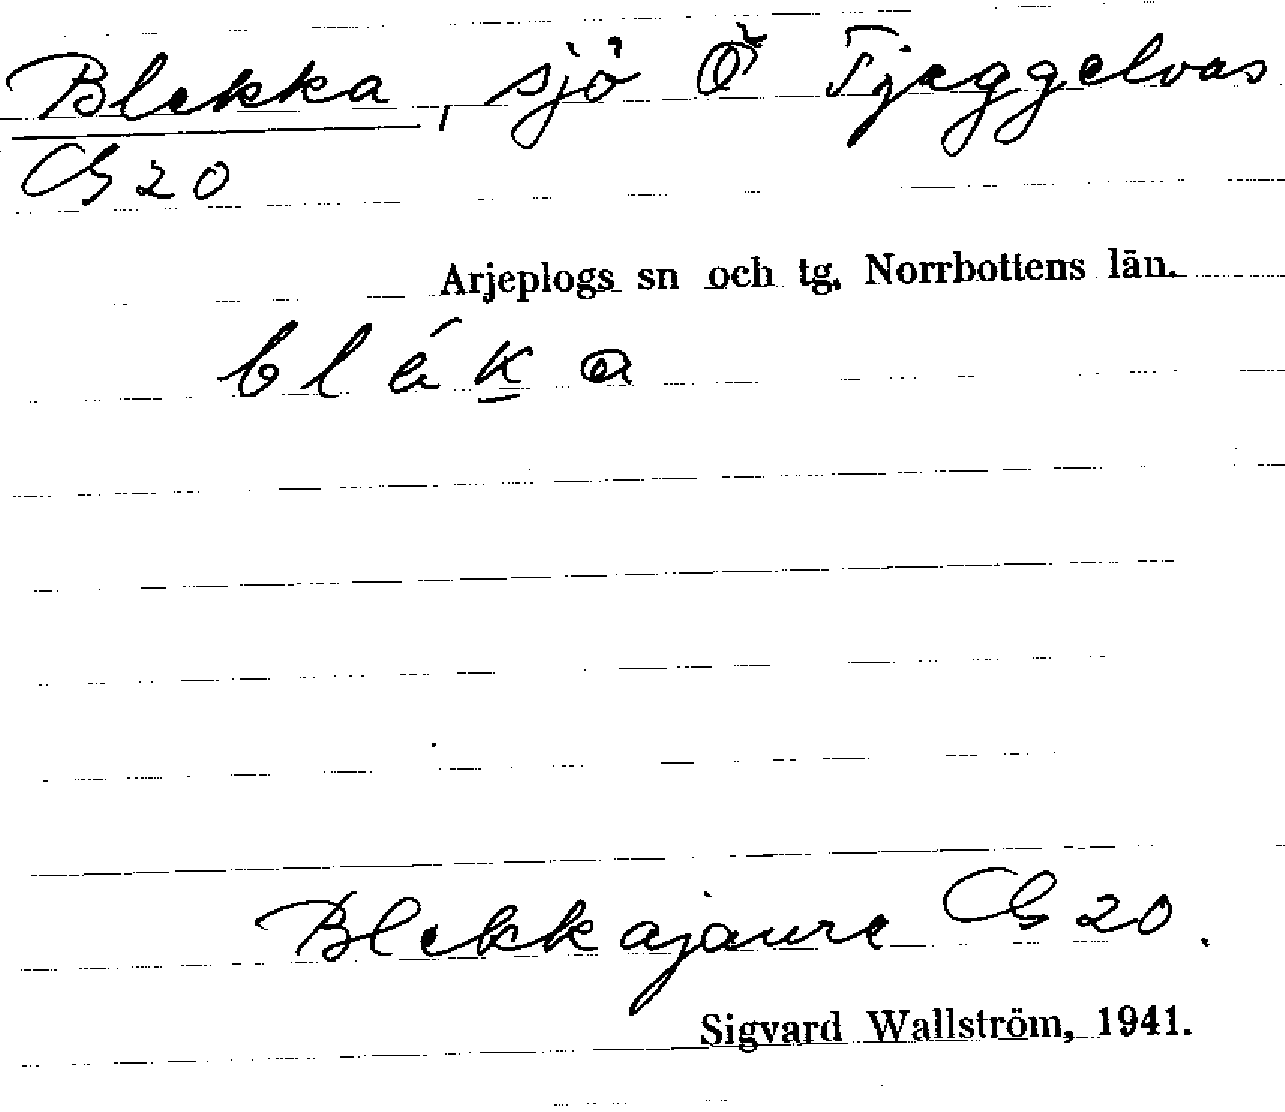 Blekka, sjö Ö Tjeggelvas
G 20
Arjeplogs sn och tg. Norrbottens län.
Blekkajaure G 20.
Sigvard Wallström, 1941.